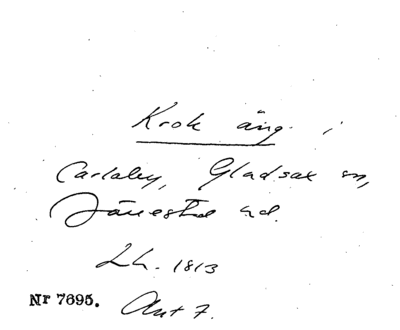 Krok äng i
Carlaby, Gladsax sn,
Järrestad hd.
Lh. 1813
Nr 7695. Akt 7.